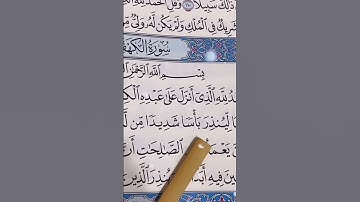 ذَلِكَ سَبِيلًا ١١٠ وَقُلِ الْحَمْدُ لِلَّهِ
شَرِيكٌ فِي الْمُلْكِ وَلَمْ يَكُن لَّهُ وَلِيٌّ مِّنَ
سُورَةُ الْكَهْفِ
بِسْمِ اللَّهِ الرَّحْمَٰنِ
لِلَّهِ الَّذِي أَنزَلَ عَلَىٰ عَبْدِهِ
لِّيُنذِرَ بَأْسًا شَدِيدًا مِّن
يَعْمَلُونَ الصَّالِحَاتِ أَنَّ
فِيهِ أَبَدًا وَيُنذِرَ الَّذِينَ